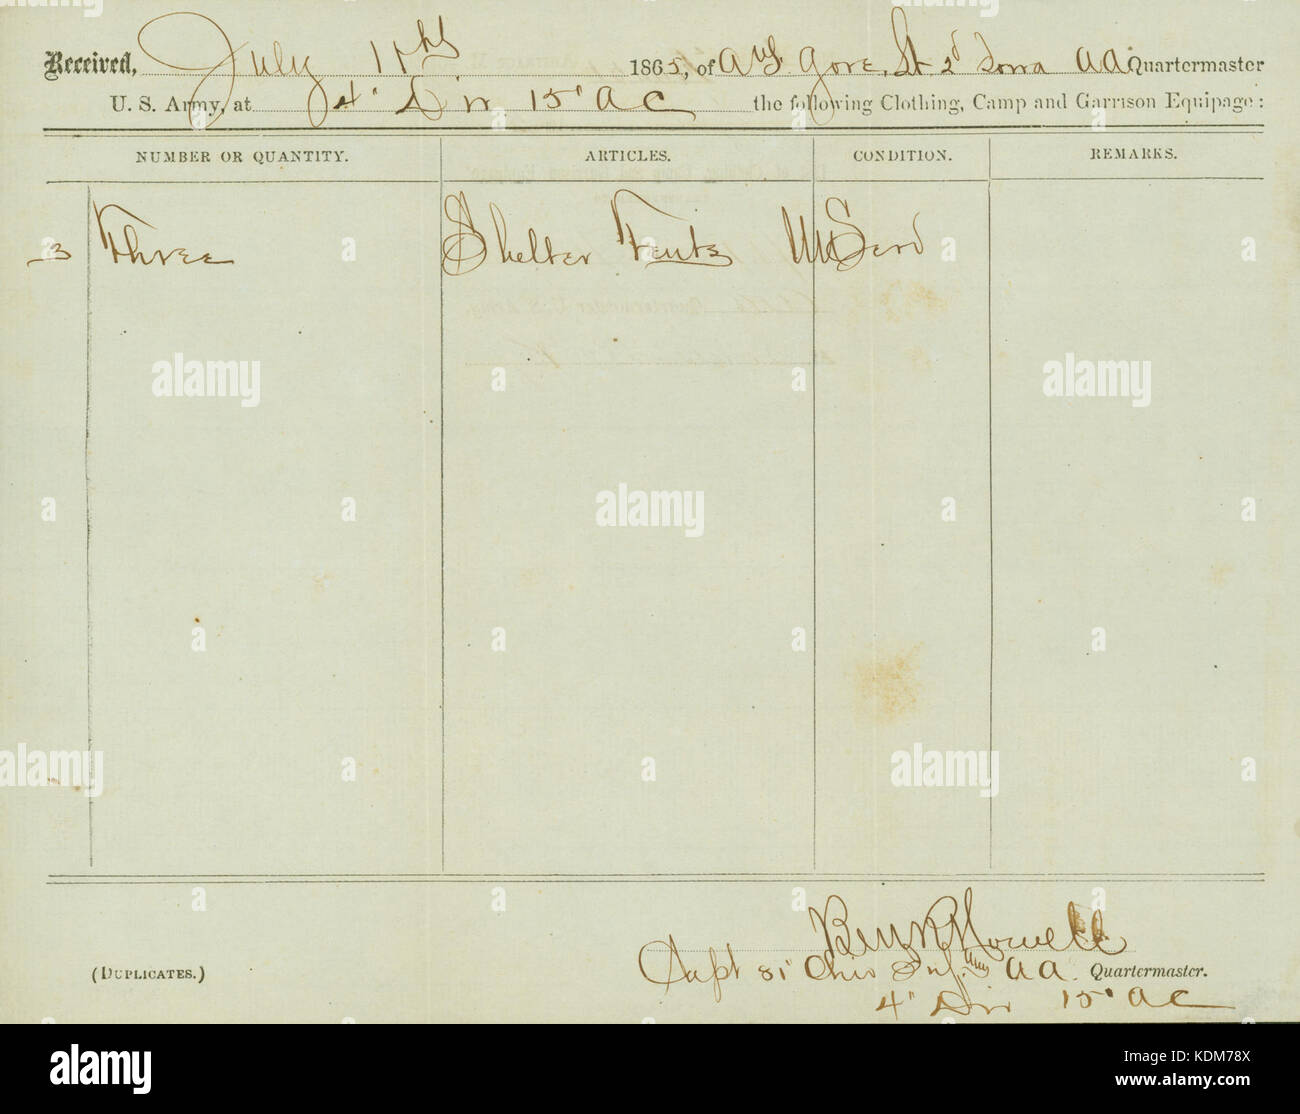 Received, July 11th 1865, of A S Gore, Lt 2d Iowa AAQuartermaster
U. S. Army, at 4" Div 15" A C the following Clothing, Camp and Garrison Equipage:
NUMBER OR QUANTITY. ARTICLES. CONDITION. REMARKS.
3 Three Shelter Tents UnServ
Benj R Howell
Capt 81" Ohio Inf. A A Quartermaster.
(DUPLICATES.)
4" Div 15" A C
alamy
alamy
a a a a
alamy
a a a a
alamy
alamy
a a a
a a a
alamy
Image ID: KDM78X
www.alamy.com